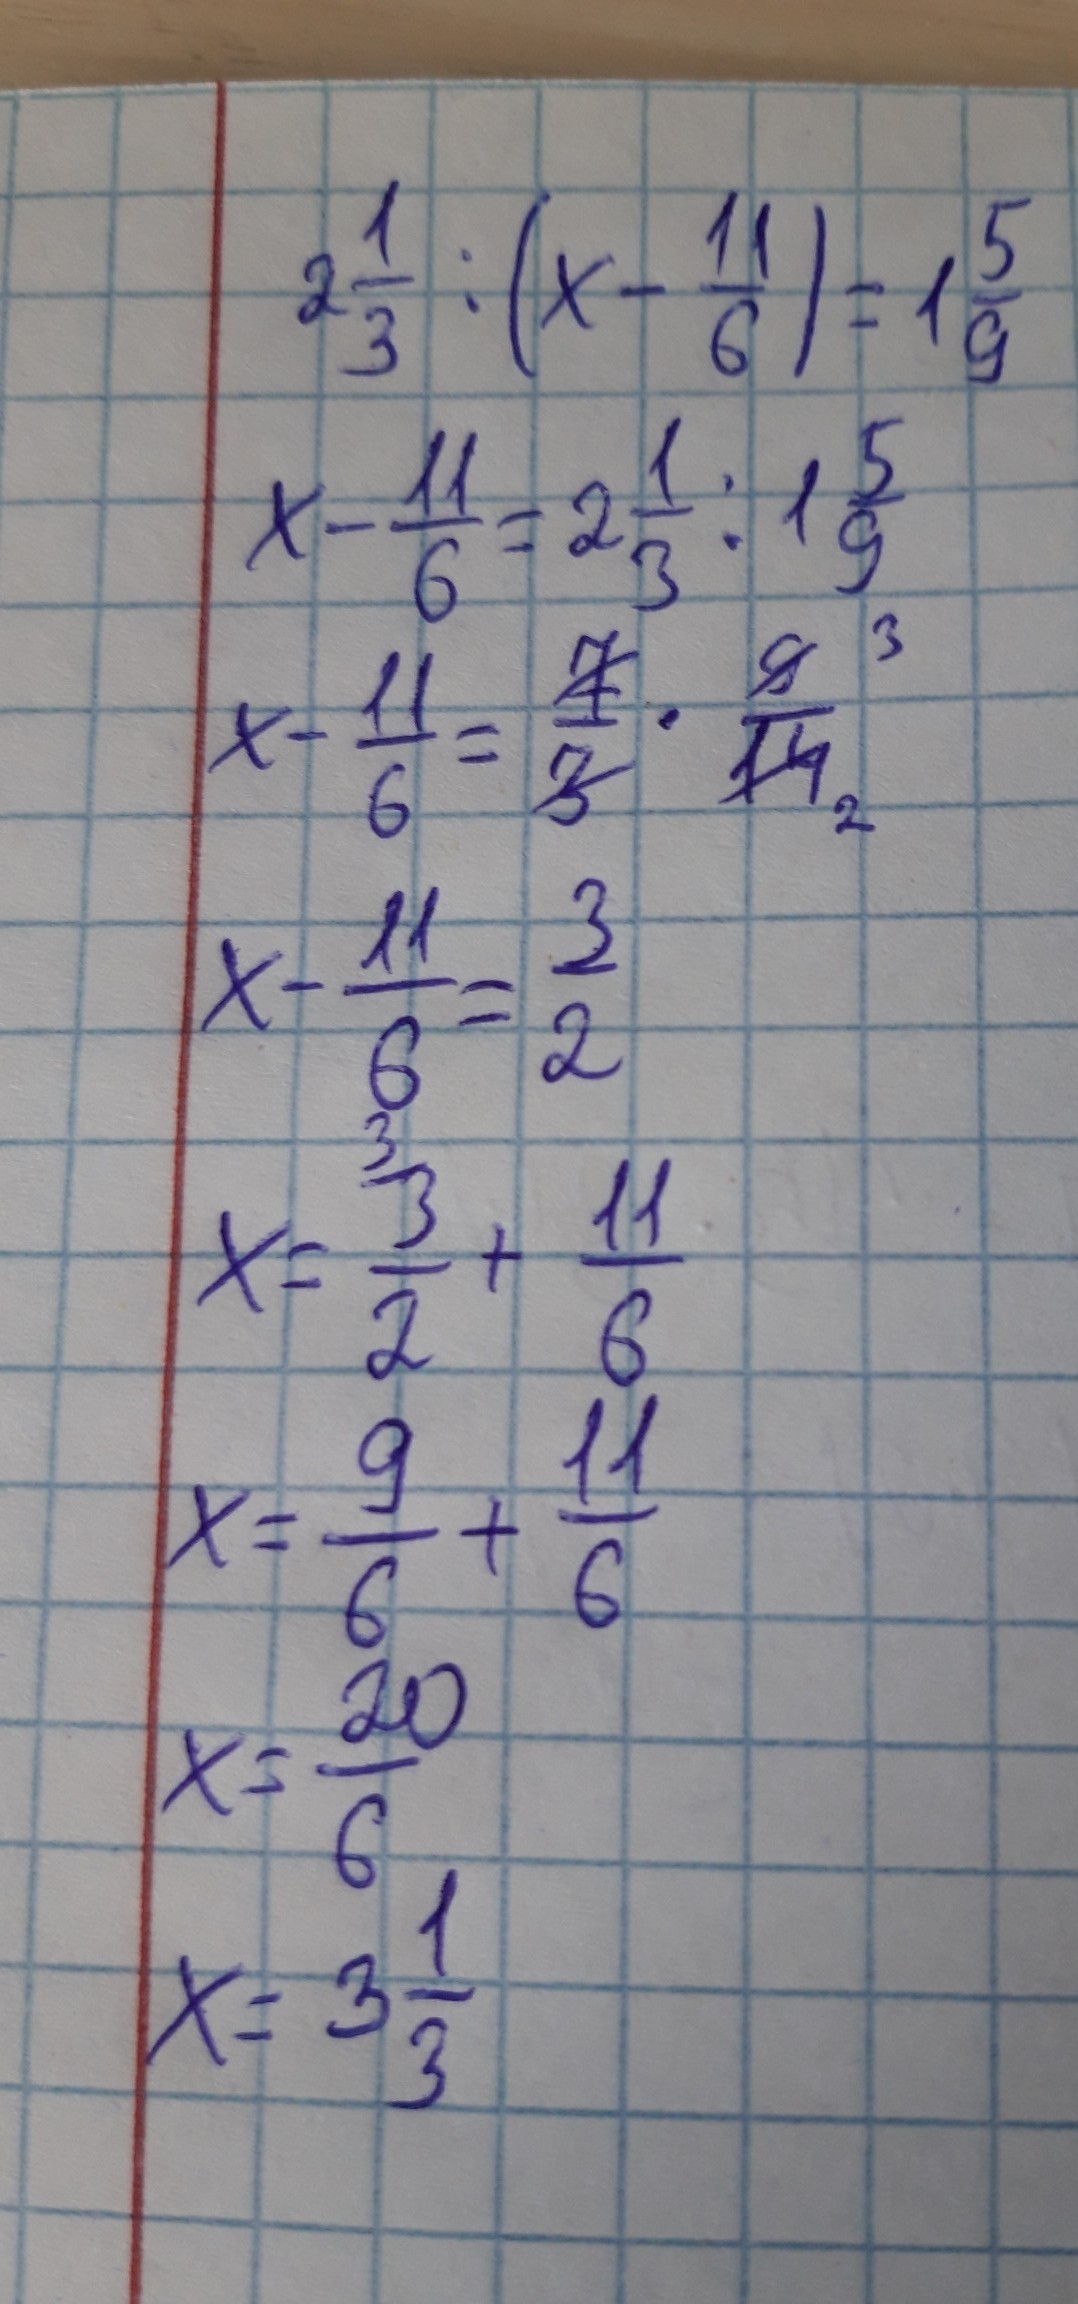 2 1/3 : (x - 11/6) = 1 5/9
x - 11/6 = 2 1/3 : 1 5/9
x - 11/6 = 7/3 · 9/14 3 2
x - 11/6 = 3/2
x = 3 3/2 + 11/6
x = 9/6 + 11/6
x = 20/6
x = 3 1/3